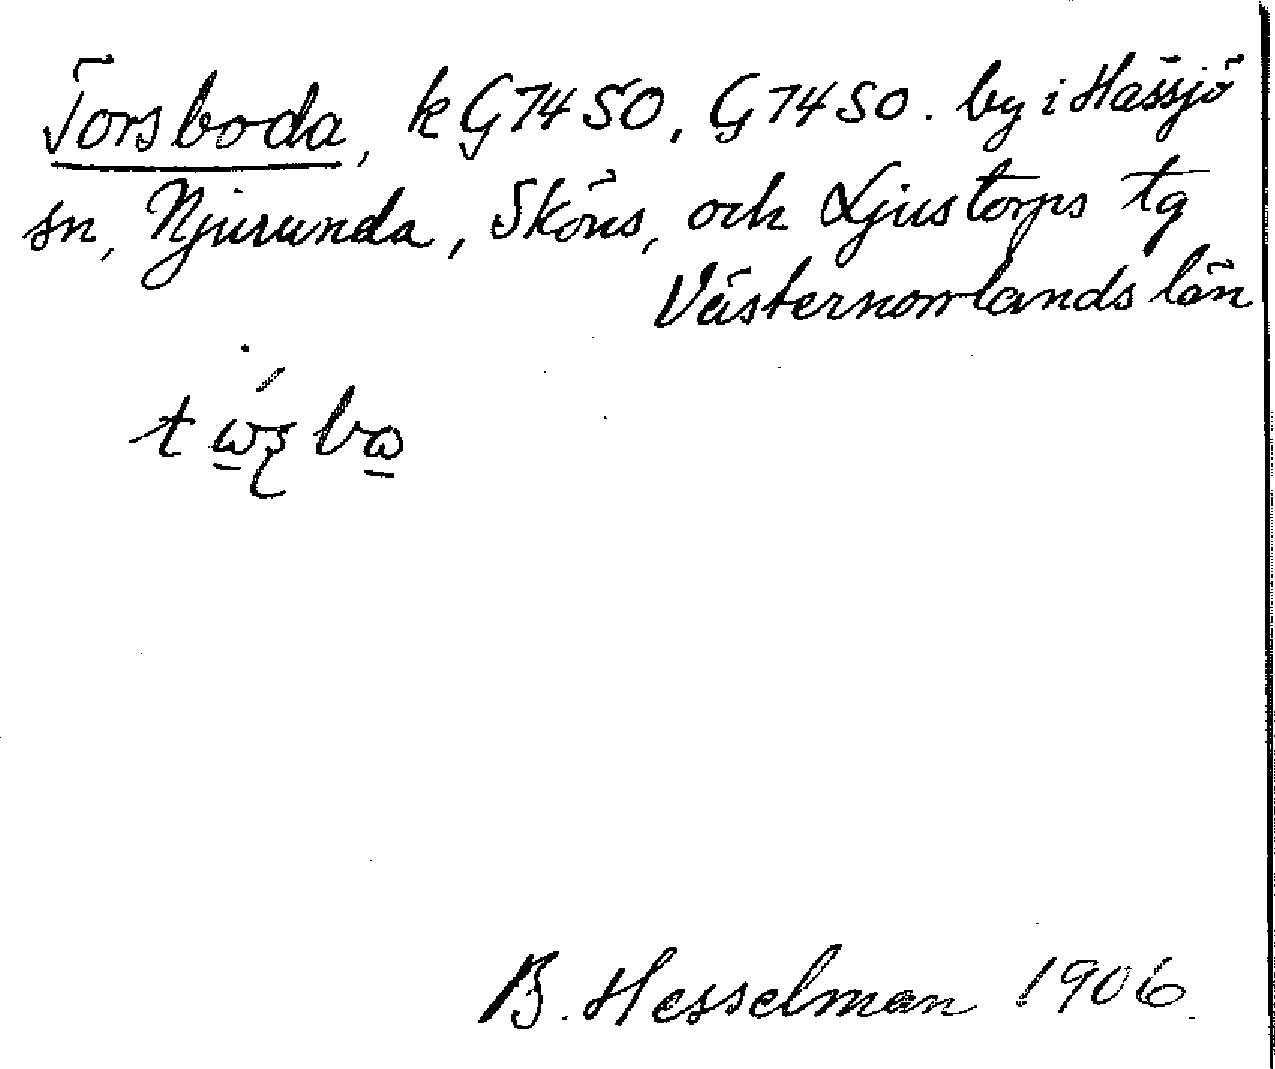 Torsboda, k G74 SO, G74 SO. by i Hässjö
sn, Njurunda, Sköns, och Ljustorps tg
Västernorrlands län
B. Hesselman 1906.